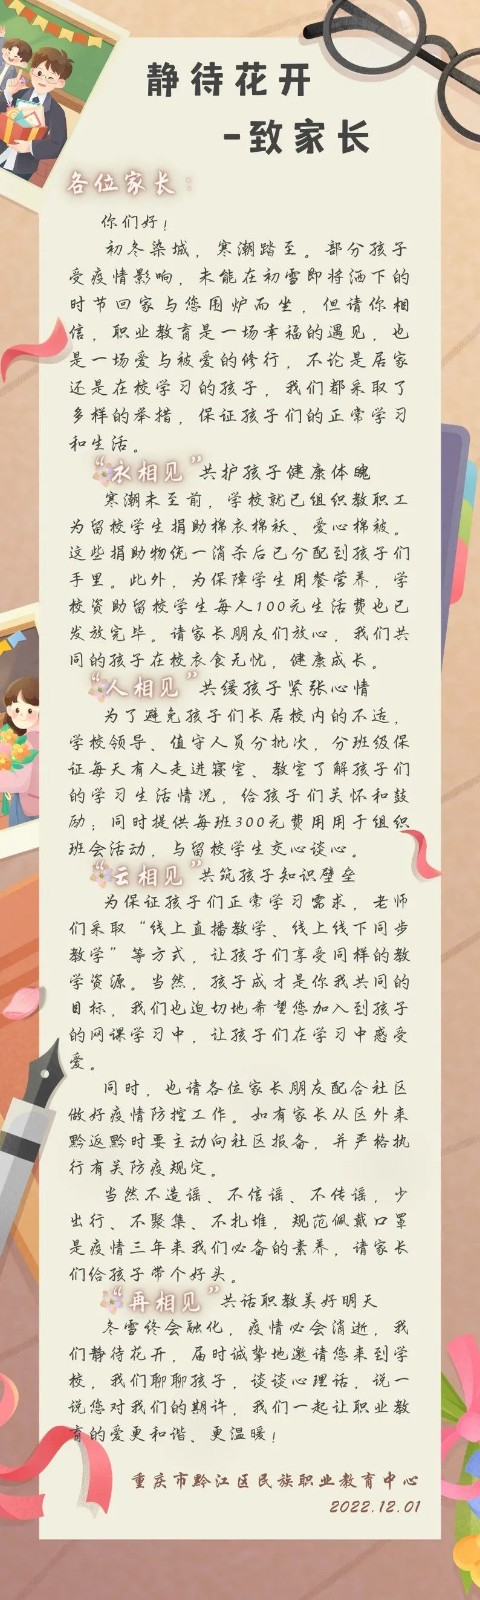 静待花开
-致家长
各位家长：
你们好！
初冬染城，寒潮踏至。部分孩子
受疫情影响，未能在初雪即将洒下的
时节回家与您围炉而坐，但请你相
信，职业教育是一场幸福的遇见，也
是一场爱与被爱的修行，不论是居家
还是在校学习的孩子，我们都采取了
多样的举措，保证孩子们的正常学习
和生活。
“衣相见”共护孩子健康体魄
寒潮未至前，学校就已组织教职工
为留校学生捐助棉衣棉袄、爱心棉被。
这些捐助物统一消杀后已分配到孩子们
手里。此外，为保障学生用餐营养，学
校资助留校学生每人100元生活费也已
发放完毕。请家长朋友们放心，我们共
同的孩子在校衣食无忧，健康成长。
“人相见”共缓孩子紧张心情
为了避免孩子们长居校内的不适，
学校领导、值守人员分批次，分班级保
证每天有人走进寝室、教室了解孩子们
的学习生活情况，给孩子们关怀和鼓
励；同时提供每班300元费用用于组织
班会活动，与留校学生交心谈心。
“云相见”共筑孩子知识壁垒
为保证孩子们正常学习需求，老师
们采取“线上直播教学、线上线下同步
教学”等方式，让孩子们享受同样的教
学资源。当然，孩子成才是你我共同的
目标，我们也迫切地希望您加入到孩子
的网课学习中，让孩子们在学习中感受
爱。
同时，也请各位家长朋友配合社区
做好疫情防控工作。如有家长从区外来
黔返黔时要主动向社区报备，并严格执
行有关防疫规定。
当然不造谣、不信谣、不传谣，少
出行、不聚集、不扎堆，规范佩戴口罩
是疫情三年来我们必备的素养，请家长
们给孩子带个好头。
“再相见”共话职教美好明天
冬雪终会融化，疫情必会消逝，我
们静待花开，届时诚挚地邀请您来到学
校，我们聊聊孩子，谈谈心理话，说一
说您对我们的期许，我们一起让职业教
育的爱更和谐、更温暖！
重庆市黔江区民族职业教育中心
2022.12.01